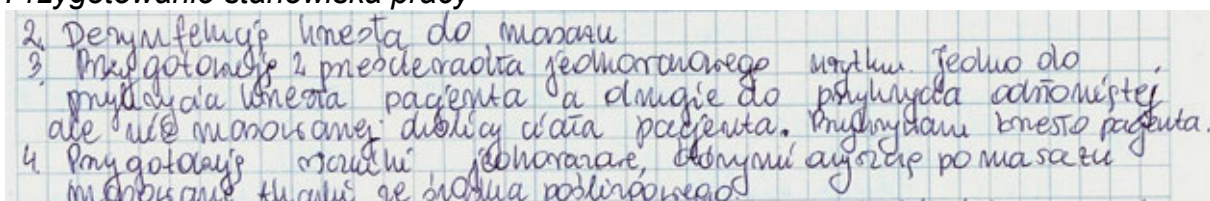 Przygotowanie stanowiska pracy
2. Dezynfekuję krzesła do masażu
3. Przygotowuję 2 prześcieradła jednorazowego użytku. Jedno do
przykrycia krzesła pacjenta a drugie do przykrycia odsłoniętej,
ale nie masowanej okolicy ciała pacjenta. Przykrywam krzesło pacjenta.
4. Przygotowuję ręczniki jednorazowe, którymi czyszczę po masażu
masowane tkanki ze środka poślizgowego.